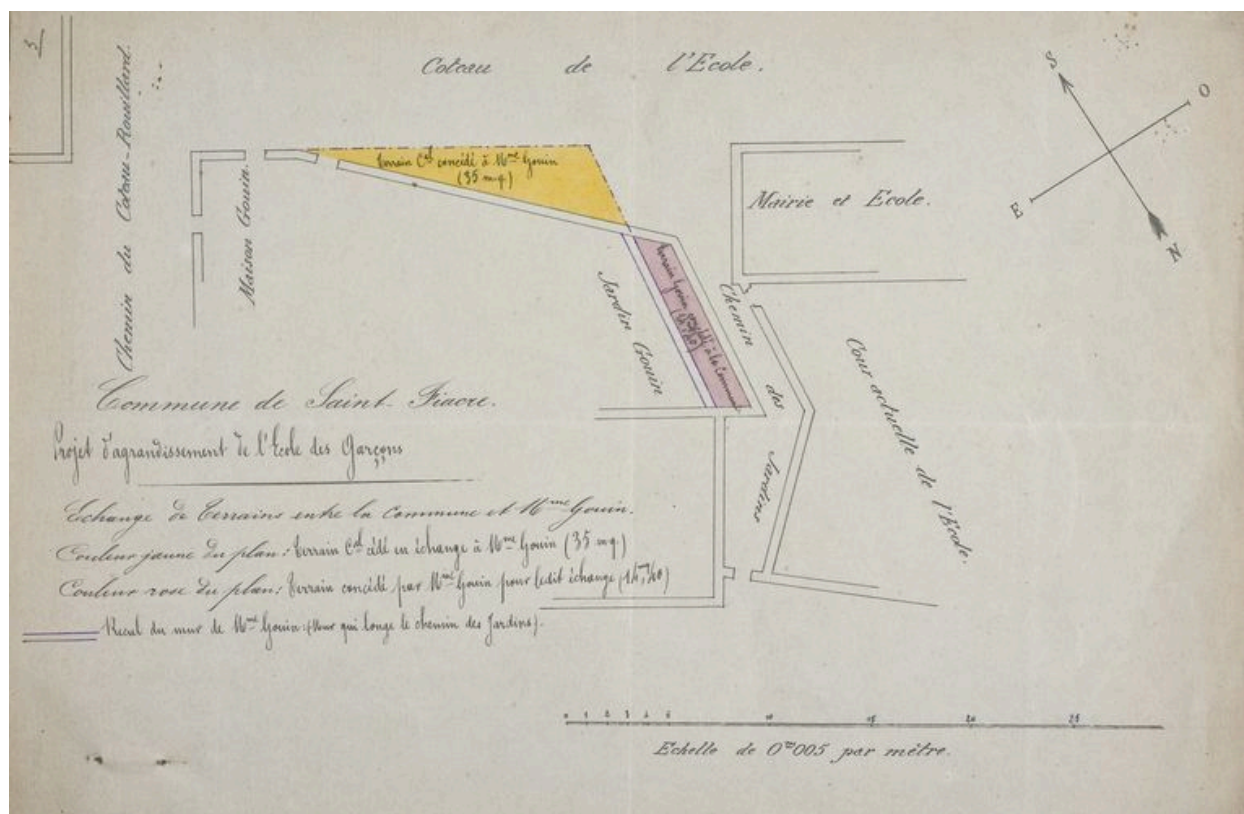 3
Coteau de l'Ecole.
Chemin du Coteau-Rouillard.
S
O
E
N
Terrain Cal concédé à Mme Gouin
(35 m.q.)
Maison Gouin.
Mairie et Ecole.
Terrain Gouin concédé à la Commune
Jardin Gouin
Chemin des Jardins
Cour actuelle de l'Ecole.
Commune de Saint-Fiacre.
Projet d'agrandissement de l'Ecole des Garçons
Echange de Terrains entre la Commune et Mme Gouin.
Couleur jaune du plan: Terrain Cal cédé en échange à Mme Gouin (35 m.q.)
Couleur rose du plan: Terrain concédé par Mme Gouin pour ledit échange
Recul du mur de Mme Gouin: (Mur qui longe le chemin des Jardins).
0 1 2 3 4 5 10 15 20 25
Echelle de 0m005 par mètre.